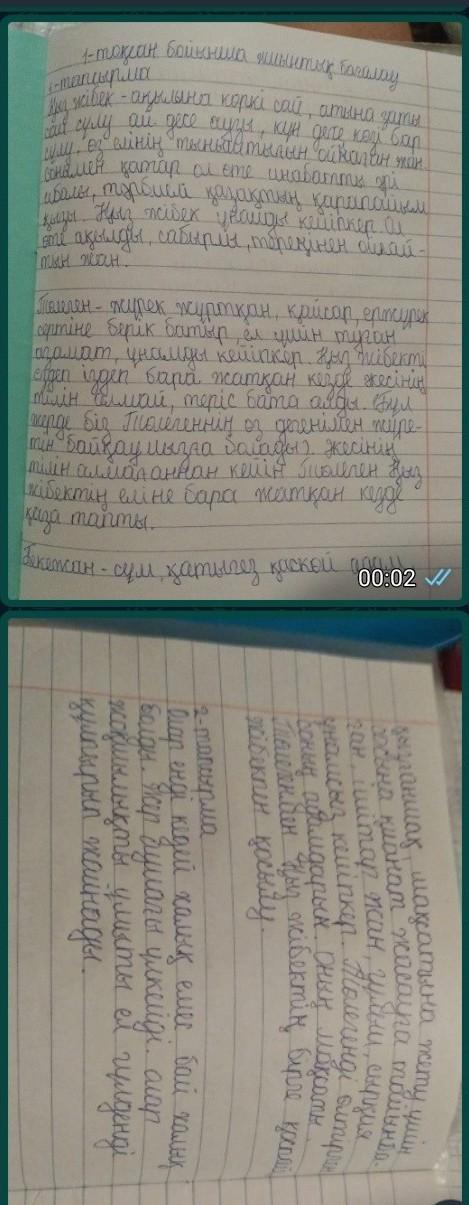 1-тоқсан бойынша жиынтық бағалау
1-тапсырма
Қыз Жібек - ақылына көркі сай, атына заты
сай сұлу ай десе аузы, күн десе көзі бар
сұлу, өз елінің тыныштығын ойлаған жан.
Сонымен қатар ол өте инабатты әрі
ибалы, тәрбиелі қазақтың қарапайым
қызы. Қыз Жібек ұнамды кейіпкер. Ол
өте ақылды, сабырлы, тереңінен ойлай-
тын жан.
Төлеген - жүрек жұртқан, қайсар, ержүрек
сертіне берік батыр, ел үшін туған
азамат, ұнамды кейіпкер. Қыз Жібекті
іздеп бара жатқан кезде әкесінің
тілін алмай, теріс бата алды. (Бұл
жерде біз Төлегеннің өз дегенімен жүре-
тін байқауымызға болады). Әкесінің
тілін алмағаннан кейін Төлеген Қыз
Жібектің еліне бара жатқан кезде
қаза тапты.
Бекежан - сұм, қатыгез қаскөй адам
00:02
қызғаншақ, мақсатына жету үшін
досына қиянат жасауға дайын
жан.
ұнамсыз кейіпкер. Төлегенді өлтірген
соның адамдары. Оның мақсаты
Төлегеннен Қыз Жібектің бірге
Жібекпен қосылу.
2-тапсырма
Олар енді кедей халық емес бай халық
болды. Жер аумағы үлкейді. Олар
жақсылықты ұлықты ел гүлденді
құлпырып жайнады.